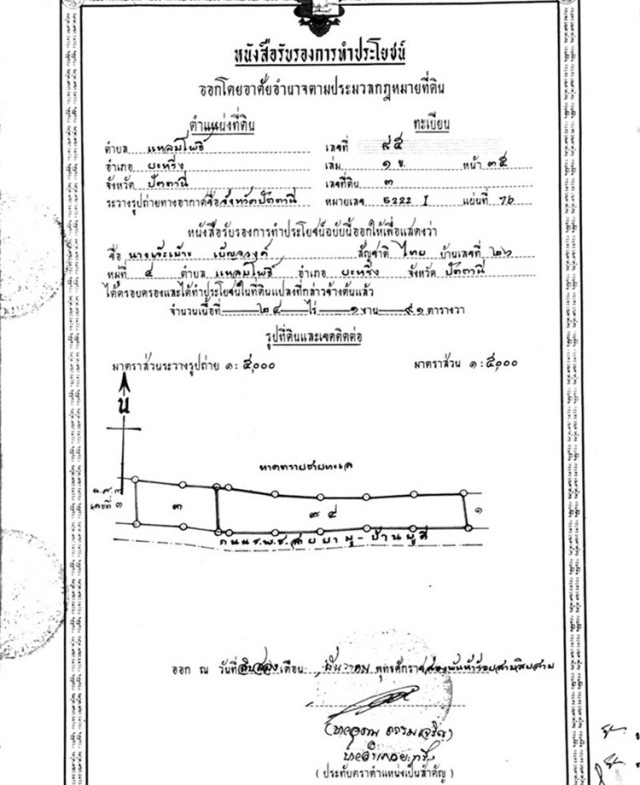 หนังสือรับรองการทำประโยชน์
ออกโดยอาศัยอำนาจตามประมวลกฎหมายที่ดิน
ตำแหน่งที่ดิน ทะเบียน
ตำบล แหลมโพธิ์ เลขที่ ๙๕
อำเภอ ยะหริ่ง เล่ม ๑ ข. หน้า ๓๕
จังหวัด ปัตตานี เลขที่ดิน ๓
ระวางรูปถ่ายทางอากาศชื่อ จังหวัดปัตตานี หมายเลข 5222 I แผ่นที่ 76
หนังสือรับรองการทำประโยชน์ฉบับนี้ออกให้เพื่อแสดงว่า
ชื่อ สัญชาติ ไทย บ้านเลขที่ ๒๖
หมู่ที่ ๔ ตำบล แหลมโพธิ์ อำเภอ ยะหริ่ง จังหวัด ปัตตานี
ได้ครอบครองและได้ทำประโยชน์ในที่ดินแปลงที่กล่าวข้างต้นแล้ว
จำนวนเนื้อที่ ๒๔ ไร่ ๑ งาน ๙๑ ตารางวา
รูปที่ดินและเขตติดต่อ
มาตราส่วนระวางรูปถ่าย ๑ : ๕,๐๐๐ มาตราส่วน ๑ : ๕,๐๐๐
น
หาดทรายชายทะเล
น.ส.๓
เลขที่ ๓ ๓ ๑
ถนน ร.พ.ช.
ออก ณ วันที่ สิบสอง เดือน ธันวาคม พุทธศักราช สองพันห้าร้อยสามสิบสาม
(ประทับตราตำแหน่งเป็นสำคัญ)